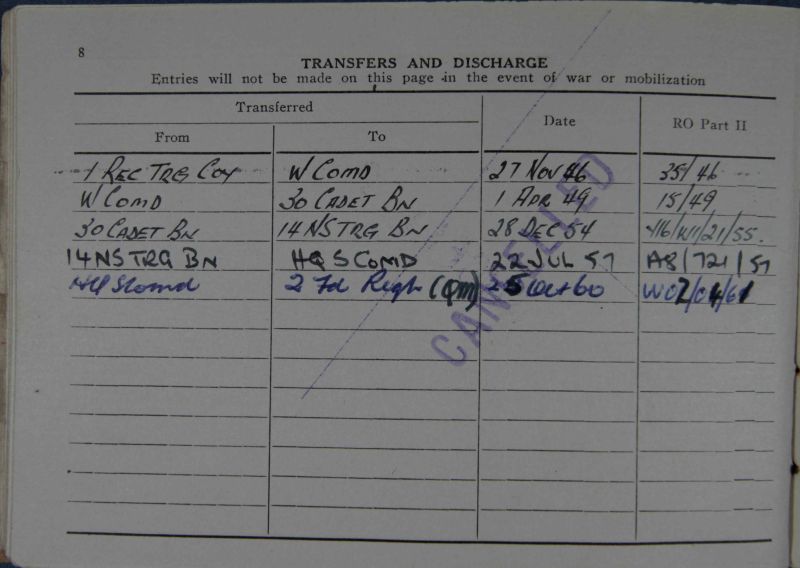 8
TRANSFERS AND DISCHARGE
Entries will not be made on this page in the event of war or mobilization
Transferred Date RO Part II
From To
1 REC TRG COY W COMD 27 NOV 46 35/46
W COMD 30 CADET BN 1 APR 49 15/49
30 CADET BN 14 NS TRG BN 28 DEC 54 /21/55.
14 NS TRG BN HQ S COMD 22 JUL 57 A8/721/57
HQ S Comd 2 Fd Regt (QM) 25 Oct 60 W02/04/61
CANCELLED